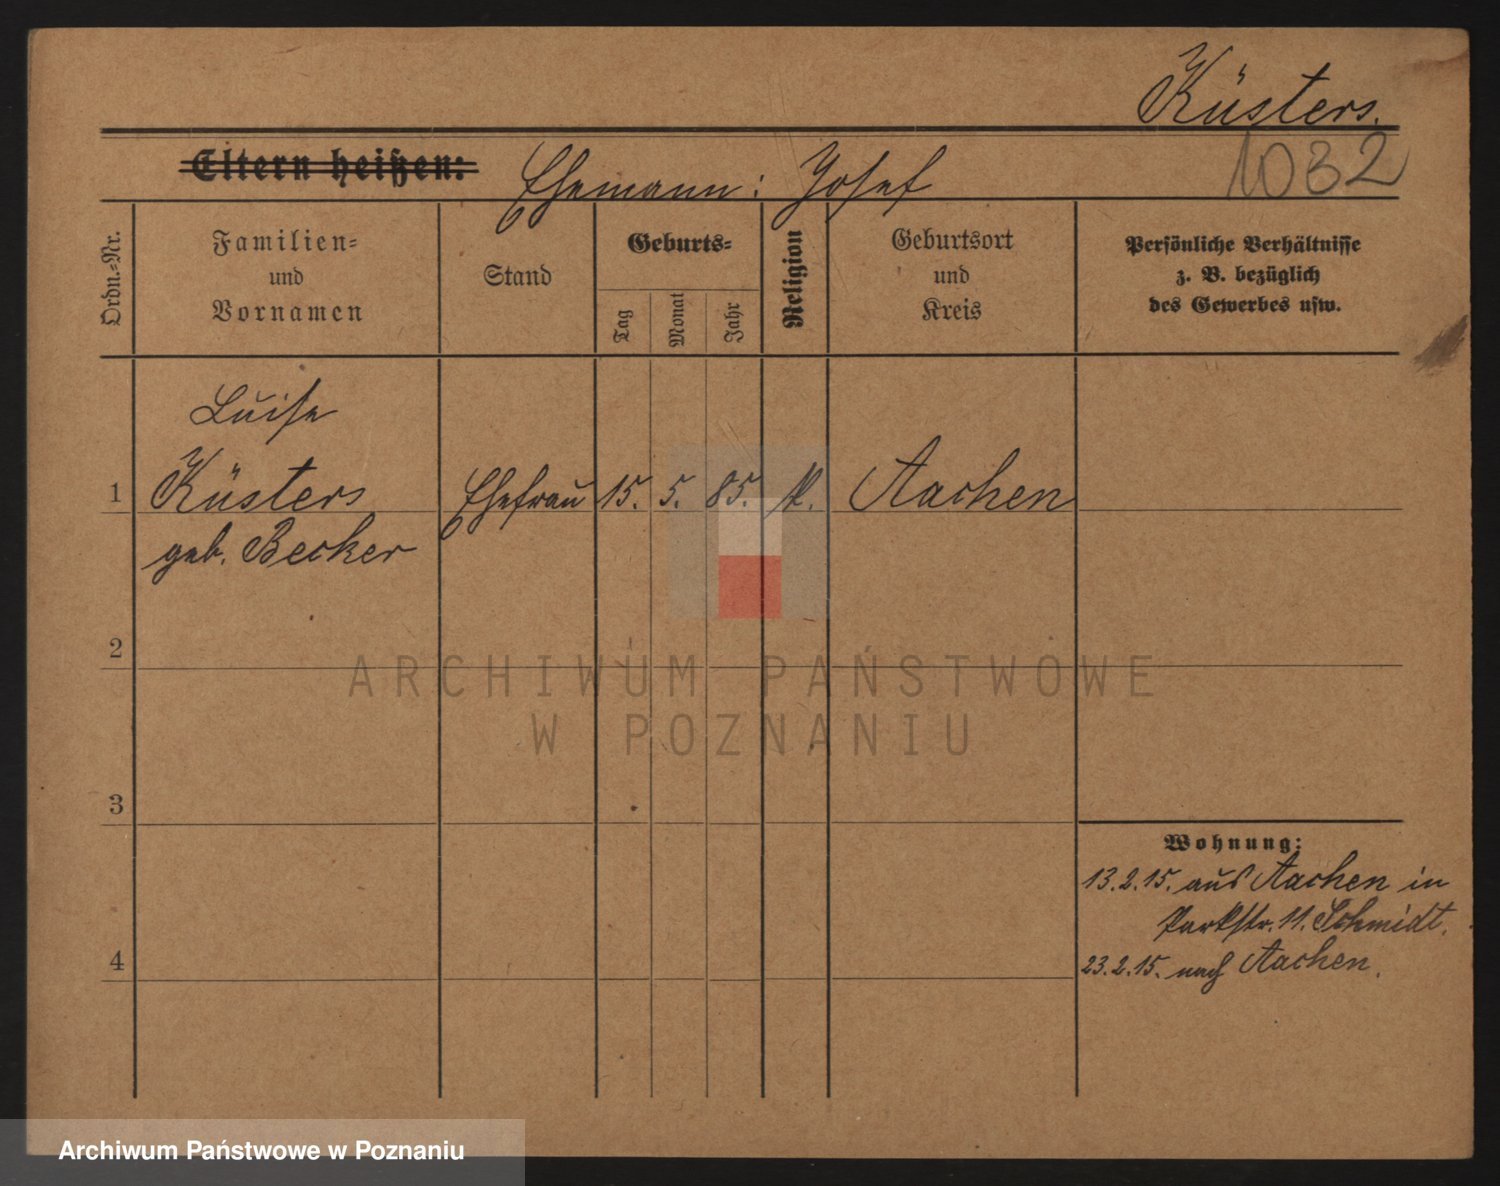 Küsters.
Eltern heißen: Ehemann: Josef
1032
Ordn.-Nr.
Familien-
und
Vornamen
Stand
Geburts-
Tag
Monat
Jahr
Religion
Geburtsort
und
Kreis
Persönliche Verhältnisse
z. B. bezüglich
des Gewerbes usw.
Luise
1 Küsters Ehefrau 15. 5. 85. Aachen
geb. Becker
2
ARCHIWUM PAŃSTWOWE
W POZNANIU
3
Wohnung:
13.2.15. aus Aachen in
Parkstr. 11. Schmidt.
4
23.2.15. nach Aachen.
Archiwum Państwowe w Poznaniu